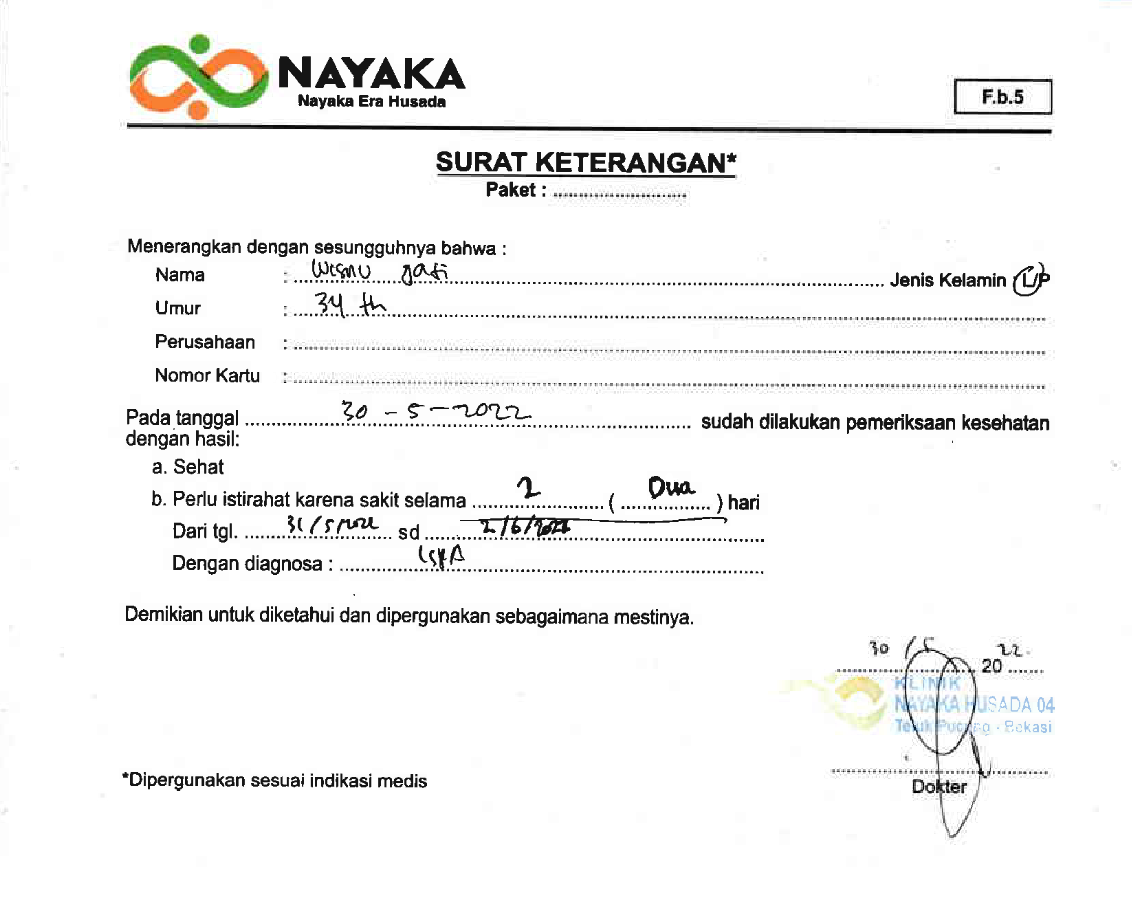 NAYAKA
Nayaka Era Husada
F.b.5
SURAT KETERANGAN*
Paket : ..........................
Menerangkan dengan sesungguhnya bahwa :
Nama : Wisnu Jati Jenis Kelamin L/P
Umur : 34 th
Perusahaan :
Nomor Kartu :
Pada tanggal 30 - 5 - 2022 sudah dilakukan pemeriksaan kesehatan
dengan hasil:
a. Sehat
b. Perlu istirahat karena sakit selama 2 ( Dua ) hari
Dari tgl. 31/5/2022 sd 2/6/2022
Dengan diagnosa : ISPA
Demikian untuk diketahui dan dipergunakan sebagaimana mestinya.
30 / 5 2022
KLINIK
NAYAKA HUSADA 04
Teluk Pucung - Bekasi
*Dipergunakan sesuai indikasi medis
Dokter